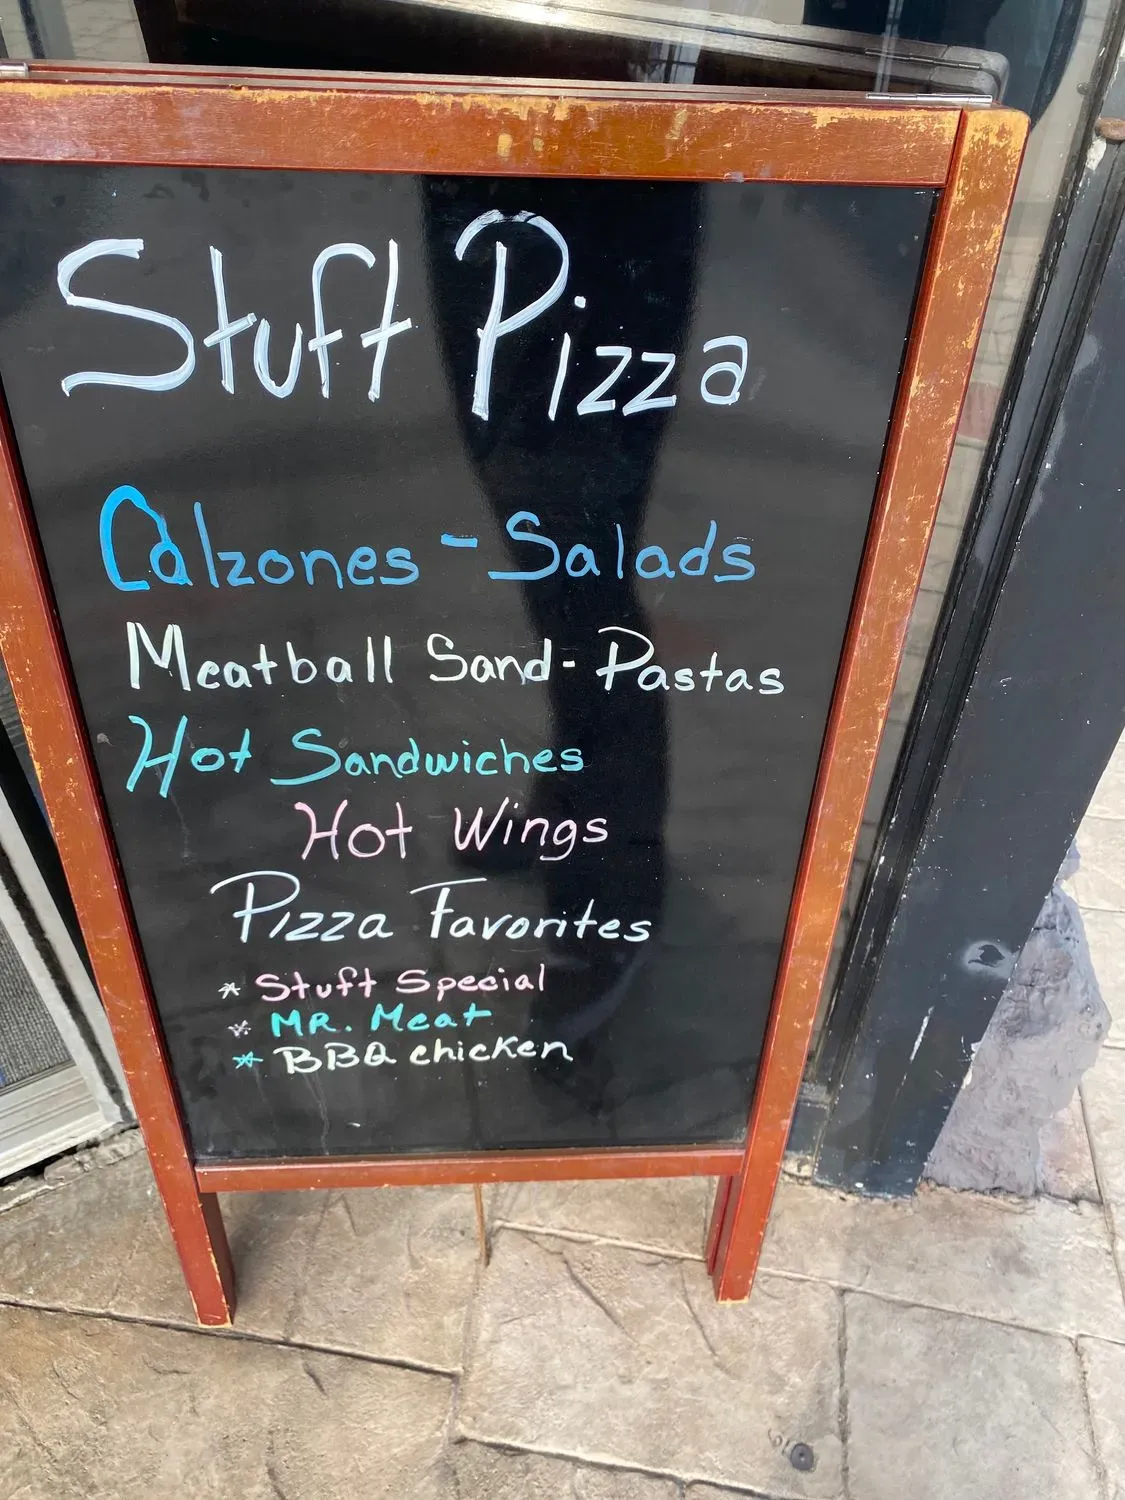 Stuft Pizza
Calzones - Salads
Meatball Sand - Pastas
Hot Sandwiches
Hot Wings
Pizza Favorites
* Stuft Special
* MR. Meat
* BBQ chicken